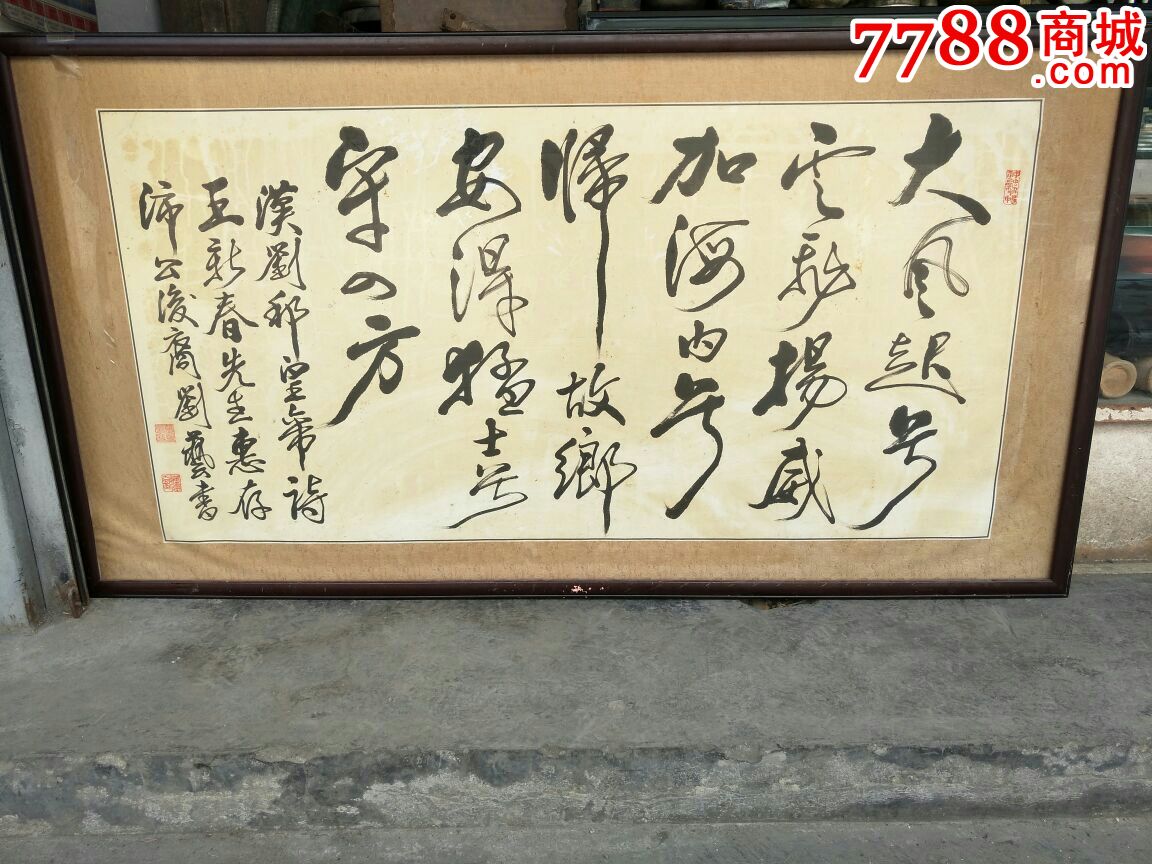 7788商城
.com
大风起兮
云飛揚威
加海内兮
帰故鄉
安得猛士兮
守四方
漢劉邦皇帝詩
王新春先生惠存
沛公後裔劉藝書